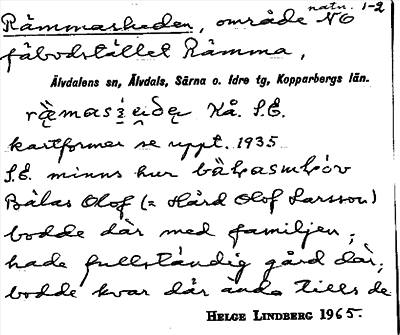 natn. 1-2
Rämmasheden, område NO
fäbodstället Rämma,
Älvdalens sn, Älvdals, Särna o. Idre tg, Kopparbergs län.
Kå. S.E.
kartformen se uppt. 1935
S.E. minns hur
Bälas Olof (= Hård Olof Larsson)
bodde där med familjen;
hade fullständig gård där;
bodde kvar där ända tills de
HELGE LINDBERG 1965.